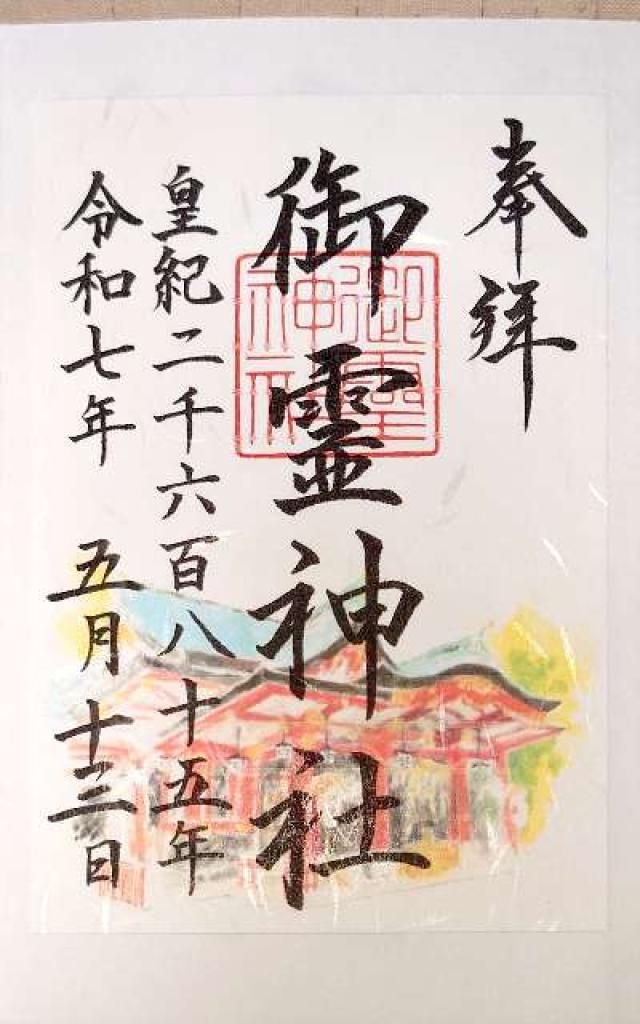 奉拝
御霊神社
御靈神社
皇紀二千六百八十五年
令和七年 五月十三日